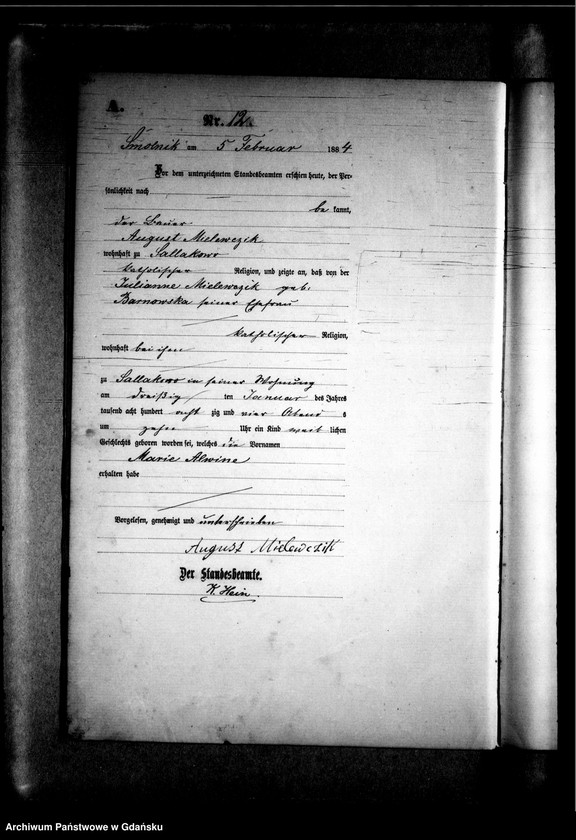 A.
Nr. 12.
Smolnik am 5 Februar 1884
Vor dem unterzeichneten Standesbeamten erschien heute, der Per-
sönlichkeit nach
be kannt,
der Bauer
August Mielewczik
wohnhaft zu Sallakowo
katholischer Religion, und zeigte an, daß von der
Julianne Mielewczik geb.
Barnowska seiner Ehefrau
katholischer Religion,
wohnhaft bei ihm
zu Sallakowo in seiner Wohnung
am dreißig ten Januar des Jahres
tausend acht hundert acht zig und vier Abend s
um zehn Uhr ein Kind weib lichen
Geschlechts geboren worden sei, welches die Vornamen
Marie Alwine
erhalten habe
Vorgelesen, genehmigt und unterschrieben
August Mielewczik
Der Standesbeamte.
K. Hein.
Archiwum Państwowe w Gdańsku